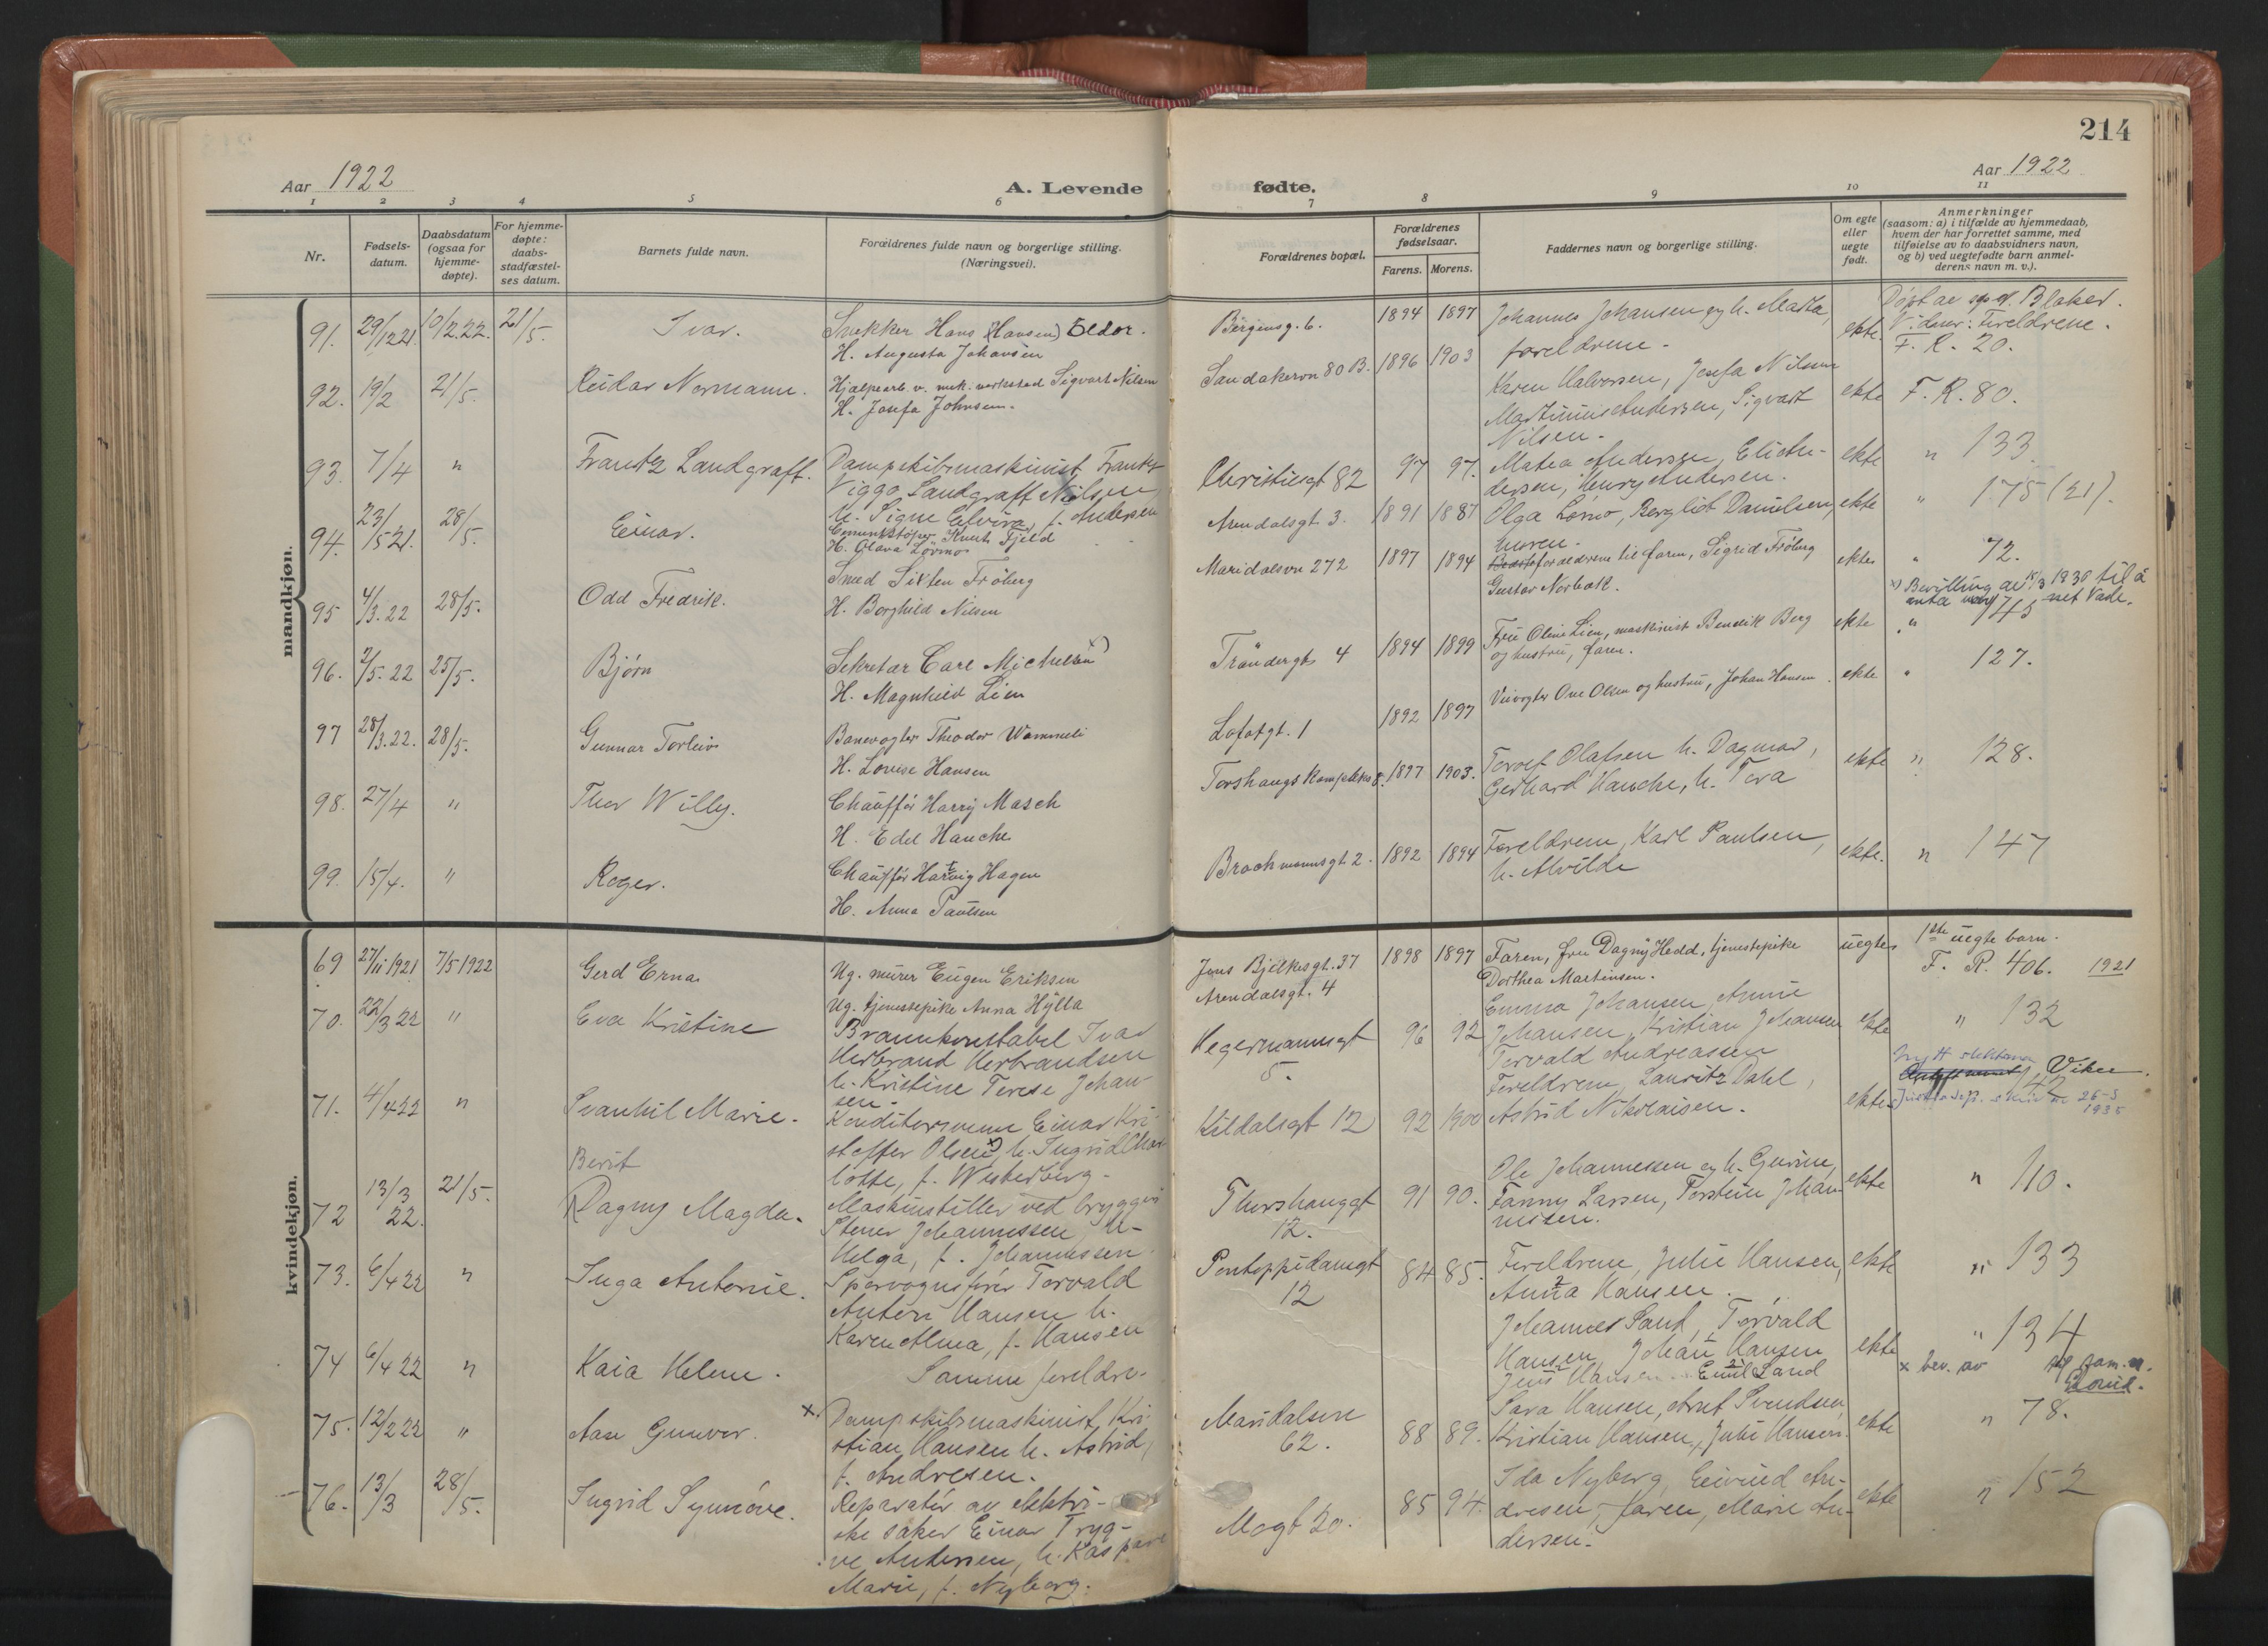 214
Aar 1922
A. Levende fødte.
Aar 1922
1 2 3 4 5 6 7 8 9 10 11
Nr.
Fødsels-
datum.
Daabsdatum
(ogsaa for
hjemme-
døpte).
For hjemme-
døpte:
daabs-
stadfæstel-
ses datum.
Barnets fulde navn.
Forældrenes fulde navn og borgerlige stilling.
(Næringsvei).
Forældrenes bopæl.
Forældrenes
fødselsaar.
Farens. Morens.
Faddernes navn og borgerlige stilling.
Om egte
eller
uegte
født.
Anmerkninger
(saasom: a) i tilfælde av hjemmedaab,
hvem der har forrettet samme, med
tilføielse av to daabsvidners navn,
og b) ved uegtefødte barn anmel-
derens navn m. v.).
mandkjøn.
91. 29/12 21. 10/2.22. 21/5. Ivar.
Snekker Hans (Hansen) Eldor.
H. Augusta Johansen
Bergensg. 6. 1894 1897
Johannes Johansen og h. Marta,
foreldrene.
ekte.
Døpt av Blaker.
Vidner: Foreldrene.
F. R. 20.
92. 19/2 21/5. Reidar Normann.
Hjælpearb. v. mek. verksted Sigvart Nilsen
H. Josefa Johnsen.
Sandakervn 80 B. 1896 1903
Karen Halvorsen, Josefa Nilsen
Martinius Andersen, Sigvart
Nilsen.
ekte F. R. 80.
93. 7/4 " Frantz Landgraff.
Dampskibsmaskinist Frantz
Viggo Landgraff Nilsen
h. Signe Elvira, f. Andersen
Christiesgt 82 97 97.
Matea Andersen, Eli An-
dersen, Henry Andersen.
ekte " 133
94. 23/5 21. 28/5. Einar.
Cementstøper Knut Fjeld
H. Olava Lørmo
Arendalsgt 3. 1891 1887
Olga Lørmo, Bergliot Danielsen,
moren.
ekte " 175 (21).
95 4/3.22 28/5. Odd Fredrik.
Smed Sixten Frøberg
H. Borghild Nilsen
Maridalsvn 272 1897 1894
foreldrene til faren, Sigrid Frøberg
Gustav Norbakk.
ekte " 72.
x) Bevilling av 1930 til å
anta navnet Vade.
96. 2/5.22 25/5. Bjørn
Sekretær Carl Michelsen x)
H. Magnhild Lien
Trøndergt 4 1894 1899
Frü Oline Lien, maskinist Bendik Berg
og hustrü, faren.
ekte " 145
97 28/3.22. 28/5. Gunnar Torleiv
Banevogter Theodor Wammeli
H. Lovise Hansen
Lofotgt. 1 1892 1897
Veivogter Ove Olsen og hustrü, Johan Hansen.
ekte " 127.
98. 27/4 " Thor Willy.
Chauffør Harry Masch
H. Edel Hauche
Torshaugs kompleks 8. 1897 1903.
Torolf Olafsen h. Dagmar,
Gerhard Hauche, h. Tora
ekte " 128.
99. 15/4. " Roger.
Chauffør Hartvig Hagen
H. Anna Paulsen
Brochmannsgt 2. 1892 1894
Foreldrene, Karl Paulsen,
h. Alvilde
ekte. " 147
kvindekjøn.
69 27/11 1921 7/5 1922 Gerd Erna
Ug. murer Eugen Eriksen
Ug. tjenestepike Anna Hylla
Jens Bjelkesgt. 37
Arendalsgt. 4
1898 1897
Faren, frü Dagny Hedd, tjenestepike
Dorthea Martinsen.
uegte
1ste uegte barn.
F. R. 406. 1921
70. 22/3 22 " Eva Kristine
Brannkonstabel Ivar
Herbrand Herbrandsen
h. Kristine Terese Johan-
sen.
Hegermannsgt
5.
96 92
Emma Johansen, Annie
Johansen, Kristian Johansen
Torvald Andreassen
ekte " 132
71. 4/4 22 " Svanhil Marie.
Konditorsvenn Einar Kri-
stoffer Olsen x), h. Ingrid Char-
lotte, f. Westerberg.
Kildalsgt 12 92 1900
Foreldrene, Lauritz Dahl,
Astrid Nikolaisen.
ekte
Nytt slektsnavn Viken.
42
26-3
1935
72 13/3 22. 21/5. Berit
Dagny Magda.
Maskinstiller ved bryggeri
Stener Johannessen, h.
Helga, f. Johannessen.
Thorshauggt
12.
91 90.
Ole Johannessen og h. Gurine,
Fanny Larsen, Torstein Johan-
nesen.
ekte " 110.
73. 6/4 22 " Inga Antonie.
Sporvognsfører Torvald
Anton Hansen h.
Karen Alma, f. Hansen
Pontoppidansgt
12
84 85.
Foreldrene, Julie Hansen,
Anna Hansen.
ekte " 133
74 6/4 22 " Kaia Helene.
Samme foreldre.
Johannes Sand, Torvald
Hansen, Johan Hansen
Jens Hansen. Emil Sand
ekte " 134
75. 12/2 22 " Aase Gunvor.
x. Dampskibsmaskinist Kri-
stian Hansen h. Astrid,
f. Andresen.
Maridalsvn
62.
88 89.
Sara Hansen, Arnt Svendsen,
Kristian Hansen, Julie Hansen.
ekte
x bev. av fam. n.
" 78.
76. 13/3 28/5. Ingrid Synnøve.
Reparatør av elektri-
ske saker Einar Tryg-
ve Andersen, h. Kaspara
Marie, f. Nyborg.
Mogt 20. 85 94.
Ida Nyborg, Eivind An-
dresen, faren, Marie An-
dersen.
ekte " 152